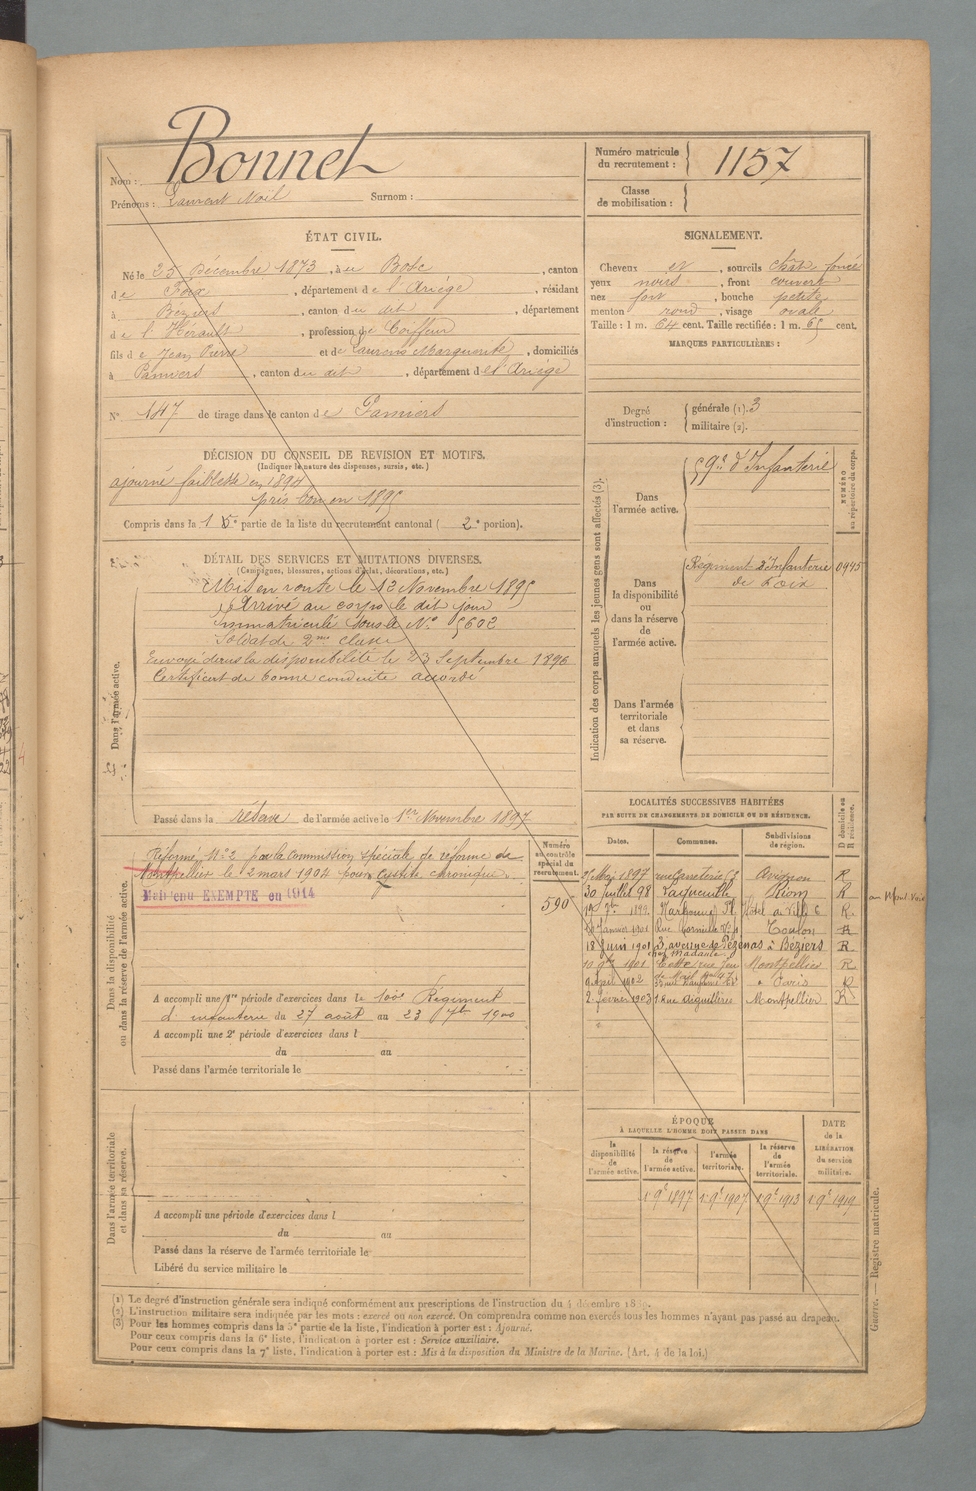 Bonnet
Nom :
Prénoms : Laurent Noël Surnom :
Numéro matricule
du recrutement : 1157
Classe
de mobilisation :
ÉTAT CIVIL.
Né le 25 Décembre 1873, à au Bosc, canton
de Foix, département de l'Ariège, résidant
à Béziers, canton du dit, département
de l'Hérault, profession de Coiffeur
fils de Jean Pierre et de Laurens Marguerite, domiciliés
à Pamiers, canton du dit, département de l'Ariège
N° 147 de tirage dans le canton de Pamiers
SIGNALEMENT.
Cheveux et, sourcils chât. foncé
yeux noirs, front couvert
nez fort, bouche petite
menton rond, visage ovale
Taille : 1 m. 64 cent. Taille rectifiée : 1 m. 65 cent.
MARQUES PARTICULIÈRES :
Degré
d'instruction :
générale (1). 3
militaire (2).
DÉCISION DU CONSEIL DE REVISION ET MOTIFS.
(Indiquer la nature des dispenses, sursis, etc.)
ajourné faiblesse en 1894
pris bon en 1895
Compris dans la partie de la liste du recrutement cantonal ( 2e portion).
DÉTAIL DES SERVICES ET MUTATIONS DIVERSES.
(Campagnes, blessures, actions d'éclat, décorations, etc.)
Dans l'armée active.
Mis en route le 12 Novembre 1895
Arrivé au corps le dit jour
Immatriculé sous le N° 5602
Soldat de 2me classe
Envoyé dans la disponibilité le 23 Septembre 1896
Certificat de bonne conduite accordé
Passé dans la réserve de l'armée active le 1er Novembre 1897
Indication des corps auxquels les jeunes gens sont affectés (3).
NUMÉRO
au répertoire du corps.
Dans
l'armée active.
59e d'Infanterie
Dans
la disponibilité
ou
dans la réserve
de
l'armée active.
Régiment d'Infanterie 0945
de Foix
Dans l'armée
territoriale
et dans
sa réserve.
Dans la disponibilité
ou dans la réserve de l'armée active.
Réformé N° 2 par la Commission spéciale de réforme de
Montpellier le 12 mars 1904 pour cystite chronique.
Maintenu EXEMPTE en 1914
Numéro
au contrôle
spécial du
recrutement.
590
A accompli une 1re période d'exercices dans le 100e Régiment
d'infanterie du 27 août au 23 7bre 1900
A accompli une 2e période d'exercices dans l
du au
Passé dans l'armée territoriale le
LOCALITÉS SUCCESSIVES HABITÉES
PAR SUITE DE CHANGEMENTS DE DOMICILE OU DE RÉSIDENCE.
Dates. Communes. Subdivisions
de région.
D domicile ou
R résidence.
Mai 1897 Avignon R
30 Juillet 98 Laqueuille Riom R
1899 Narbonne Pl. Hôtel de Ville 6 R
Janvier 1901 Rue Toulon R
18 Juin 1901 3, avenue de Pézenas à Béziers R
chez Madame
1901 Cette, rue Montpellier R
1902 Paris R
2 février 1903 1 Rue Aiguillerie Montpellier R
Dans l'armée territoriale
et dans sa réserve.
A accompli une période d'exercices dans l
du au
Passé dans la réserve de l'armée territoriale le
Libéré du service militaire le
ÉPOQUE
À LAQUELLE L'HOMME DOIT PASSER DANS
DATE
de la
LIBÉRATION
du service
militaire.
la
disponibilité
de
l'armée active.
la réserve
de
l'armée active.
l'armée
territoriale.
la réserve
de
l'armée
territoriale.
1 9e 1897 1 9e 1907 1 9e 1913 1 9e 1919
(1) Le degré d'instruction générale sera indiqué conformément aux prescriptions de l'instruction du 4 décembre
(2) L'instruction militaire sera indiquée par les mots : exercé ou non exercé. On comprendra comme non exercés tous les hommes n'ayant pas passé au drapeau.
(3) Pour les hommes compris dans la 5e partie de la liste, l'indication à porter est : Ajourné.
Pour ceux compris dans la 6e liste, l'indication à porter est : Service auxiliaire.
Pour ceux compris dans la 7e liste, l'indication à porter est : Mis à la disposition du Ministre de la Marine. (Art. 4 de la loi.)
Guerre. — Registre matricule.